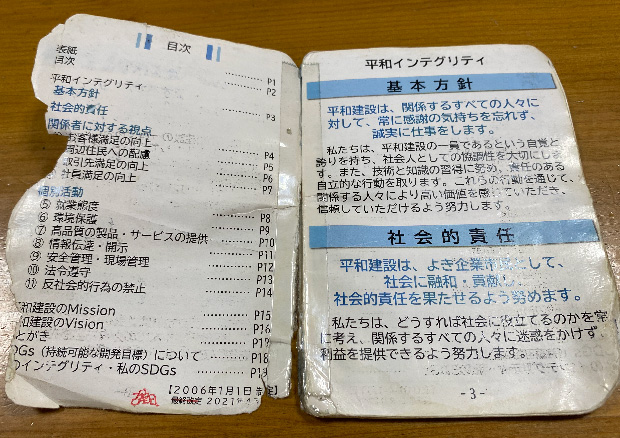 目次
表紙
目次 P1
平和インテグリティ P2
基本方針
社会的責任 P3
関係者に対する視点
お客様満足の向上 P4
周辺住民への配慮 P5
取引先満足の向上 P6
社員満足の向上 P7
個別活動
⑤ 就業態度 P8
⑥ 環境保護 P9
⑦ 高品質の製品・サービスの提供 P10
⑧ 情報伝達・開示 P11
⑨ 安全管理・現場管理 P12
⑩ 法令遵守 P13
⑪ 反社会的行為の禁止 P14
和建設のMission P15
和建設のVision P16
とがき P17
DGs(持続可能な開発目標)について P18
のインテグリティ・私のSDGs
【2006年1月1日
最終改定 2021年4
平和インテグリティ
基本方針
平和建設は、関係するすべての人々に
対して、常に感謝の気持ちを忘れず、
誠実に仕事をします。
私たちは、平和建設の一員であるという自覚と
誇りを持ち、社会人としての協調性を大切にしま
す。また、技術と知識の習得に努め、責任のある
自立的な行動を取ります。これらの行動を通じて、
関係する人々により高い価値を感じていただき、
信頼していただけるよう努力します。
社会的責任
平和建設は、よき企業 して、
社会に融和・貢献
社会的責任を果たせるよう努めます。
私たちは、どうすれば社会に役立てるのかを常
に考え、関係するすべての人々に迷惑をかけず、
利益を提供できるよう努力します。
-3-